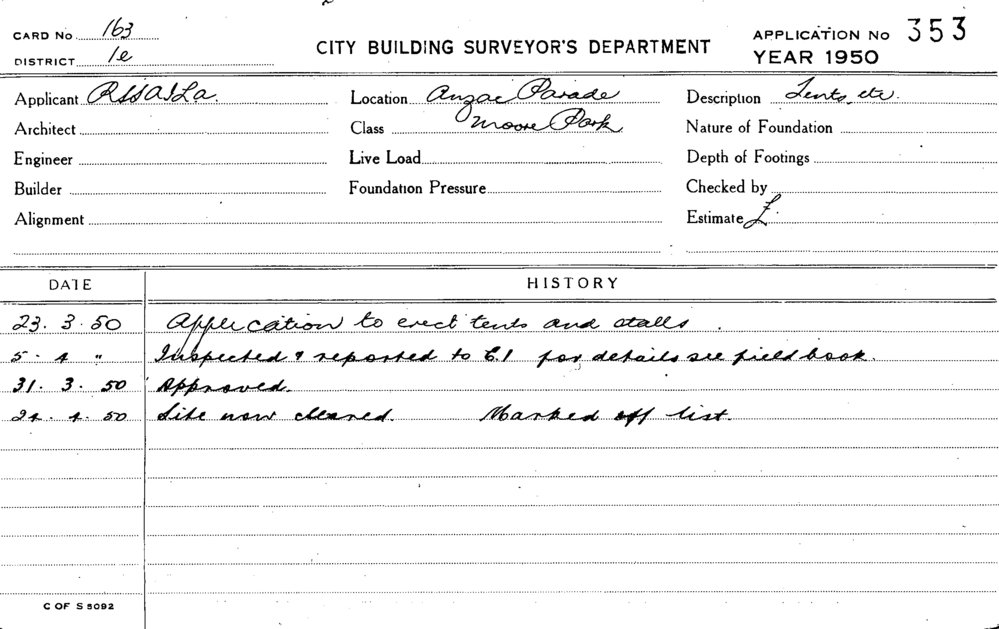 CARD No 163
DISTRICT 1e
CITY BUILDING SURVEYOR'S DEPARTMENT
APPLICATION No 353
YEAR 1950
Applicant RSSAILA. Location Anzac Parade Description Tents, etc.
Architect Class Moore Park Nature of Foundation
Engineer Live Load Depth of Footings
Builder Foundation Pressure Checked by
Alignment Estimate £
DATE HISTORY
23. 3. 50 Application to erect tents and stalls.
5 - 4 " Inspected & reported to C.I for details see field book.
31. 3. 50 Approved.
24. 4. 50 Site now cleared. Marked off list.
C OF S 5092